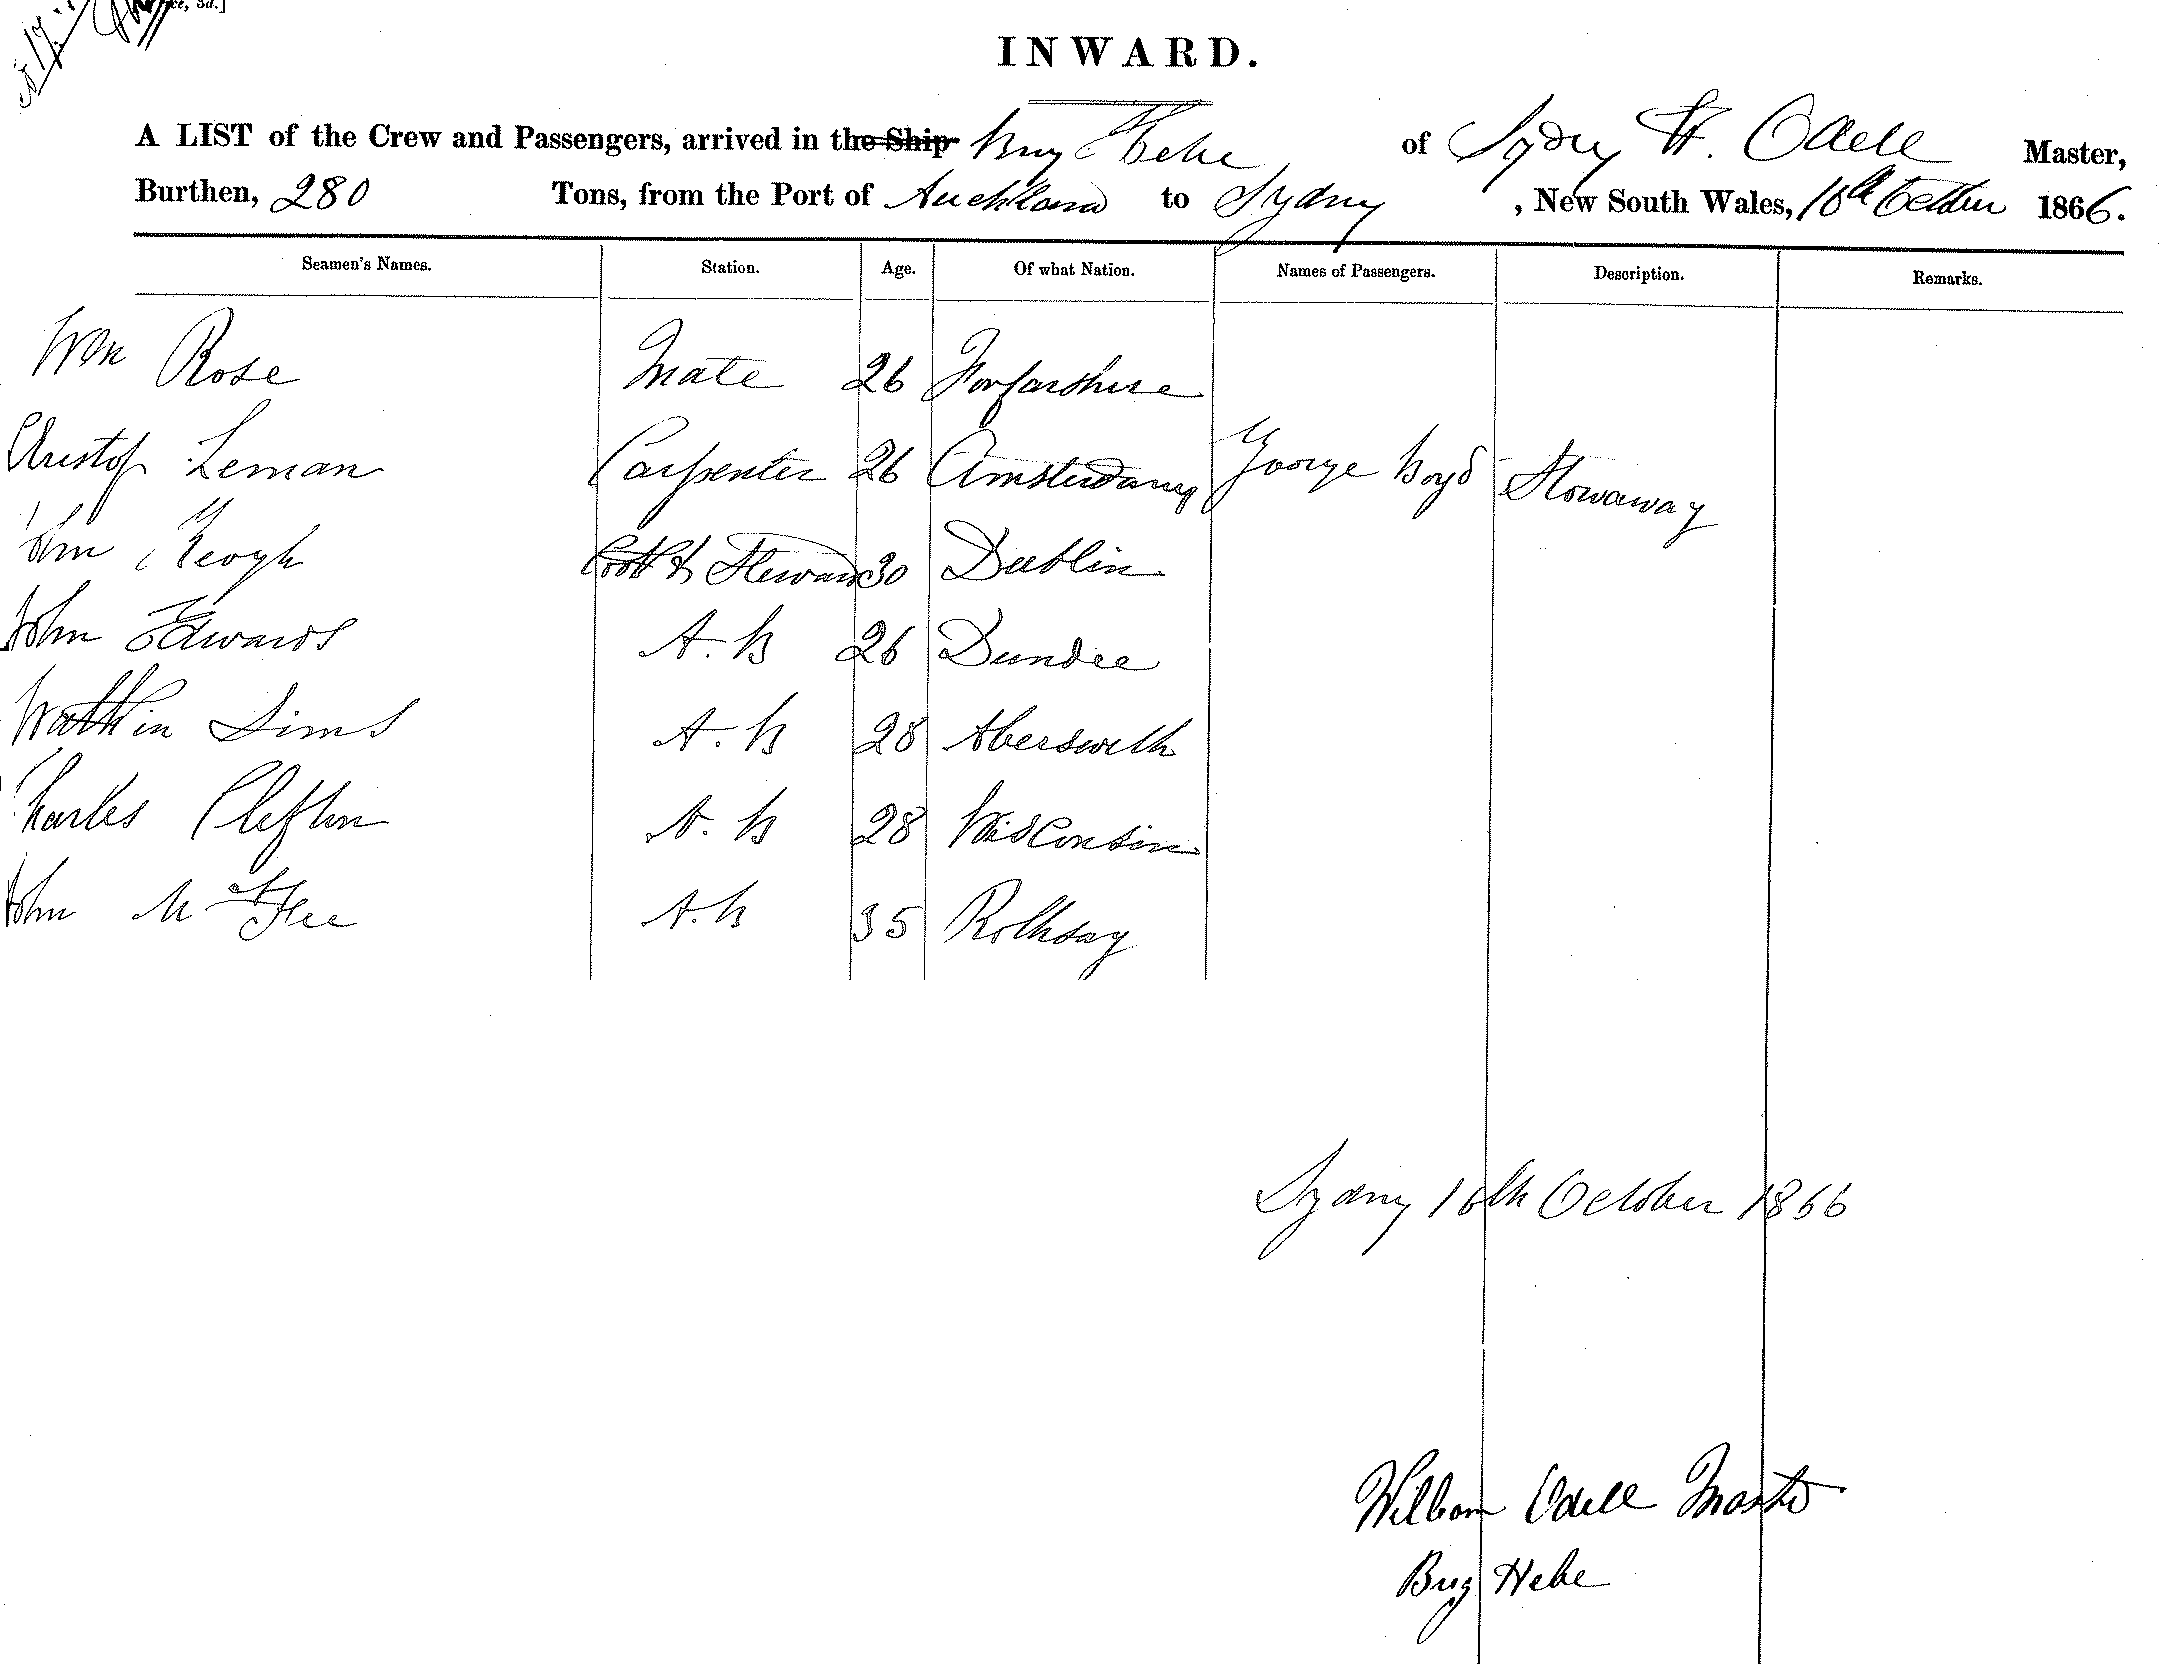 ce, 3d.]
INWARD.
A LIST of the Crew and Passengers, arrived in the Ship Brig Hebe of Sydny W. Odell Master,
Burthen, 280 Tons, from the Port of Auckland to Sydny, New South Wales, 16th October 1866.
Seamen's Names. Station. Age. Of what Nation. Names of Passengers. Description. Remarks.
Wm Rose Mate 26 Forfarshire
Christop Leman Carpenter 26 Amsterdam George Boyd Stowaway
John Keogh Cook & Steward 30 Dublin
John Edwards A.B 26 Dundee
Watkin Sims A.B 28 Aberswith
Charles Clefton A.B 28 Wisconsin
John Mc Fee A.B 35 Rothsay
Sydny 16th October 1866
William Odell Master
Brig Hebe